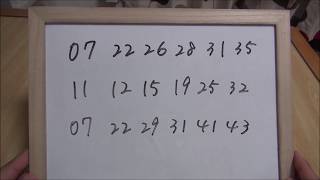 07 22 26 28 31 35
11 12 15 19 25 32
07 22 29 31 41 43